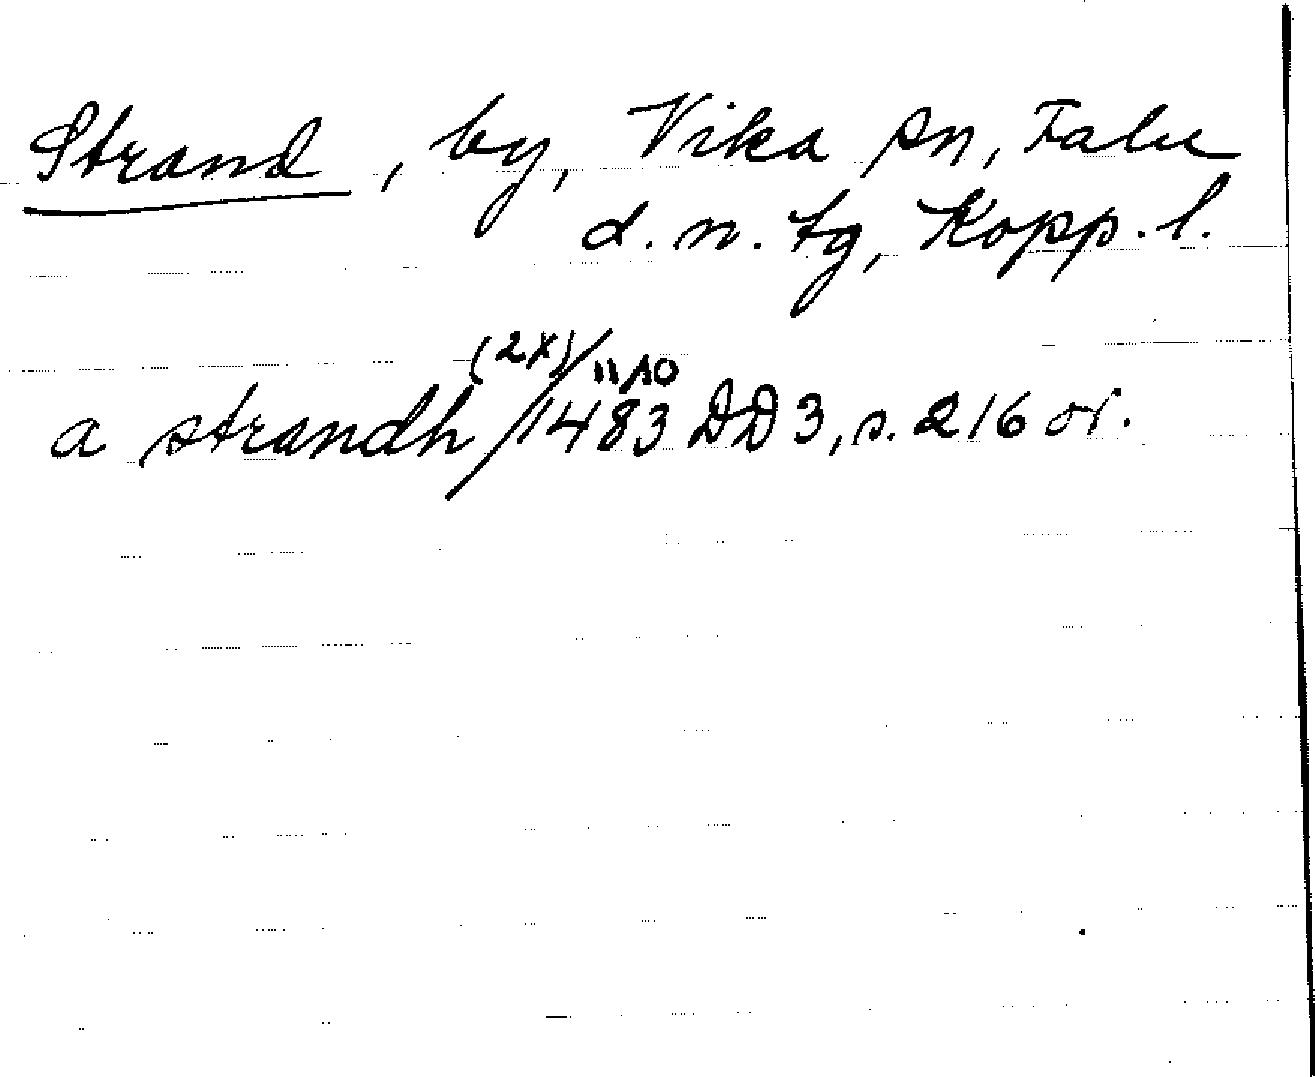 Strand, by, Vika sn, Falu
d. n. tg, Kopp. l.
(2x) 11/10
a strandh 1483 DD 3, s. 216 or.